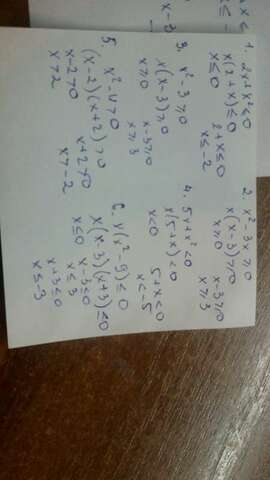 1. 2x+x² ≤ 0
x(2+x) ≤ 0
x ≤ 0 2+x ≤ 0
x ≤ -2
2. x² - 3x ≥ 0
x(x-3) ≥ 0
x ≥ 0 x-3 ≥ 0
x ≥ 3
3. x² - 3 ≥ 0
x(x-3) ≥ 0
x ≥ 0 x-3 ≥ 0
x ≥ 3
4. 5x+x² < 0
x(5+x) < 0
x < 0 5+x < 0
x < -5
5. x² - 4 > 0
(x-2)(x+2) > 0
x-2 > 0 x+2 > 0
x > 2 x > -2
6. x(x² - 9) ≤ 0
x(x-3)(x+3) ≤ 0
x ≤ 0 x-3 ≤ 0
x ≤ 3
x+3 ≤ 0
x ≤ -3